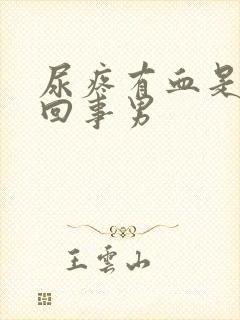 尿疼有血是
回事男
王雲山